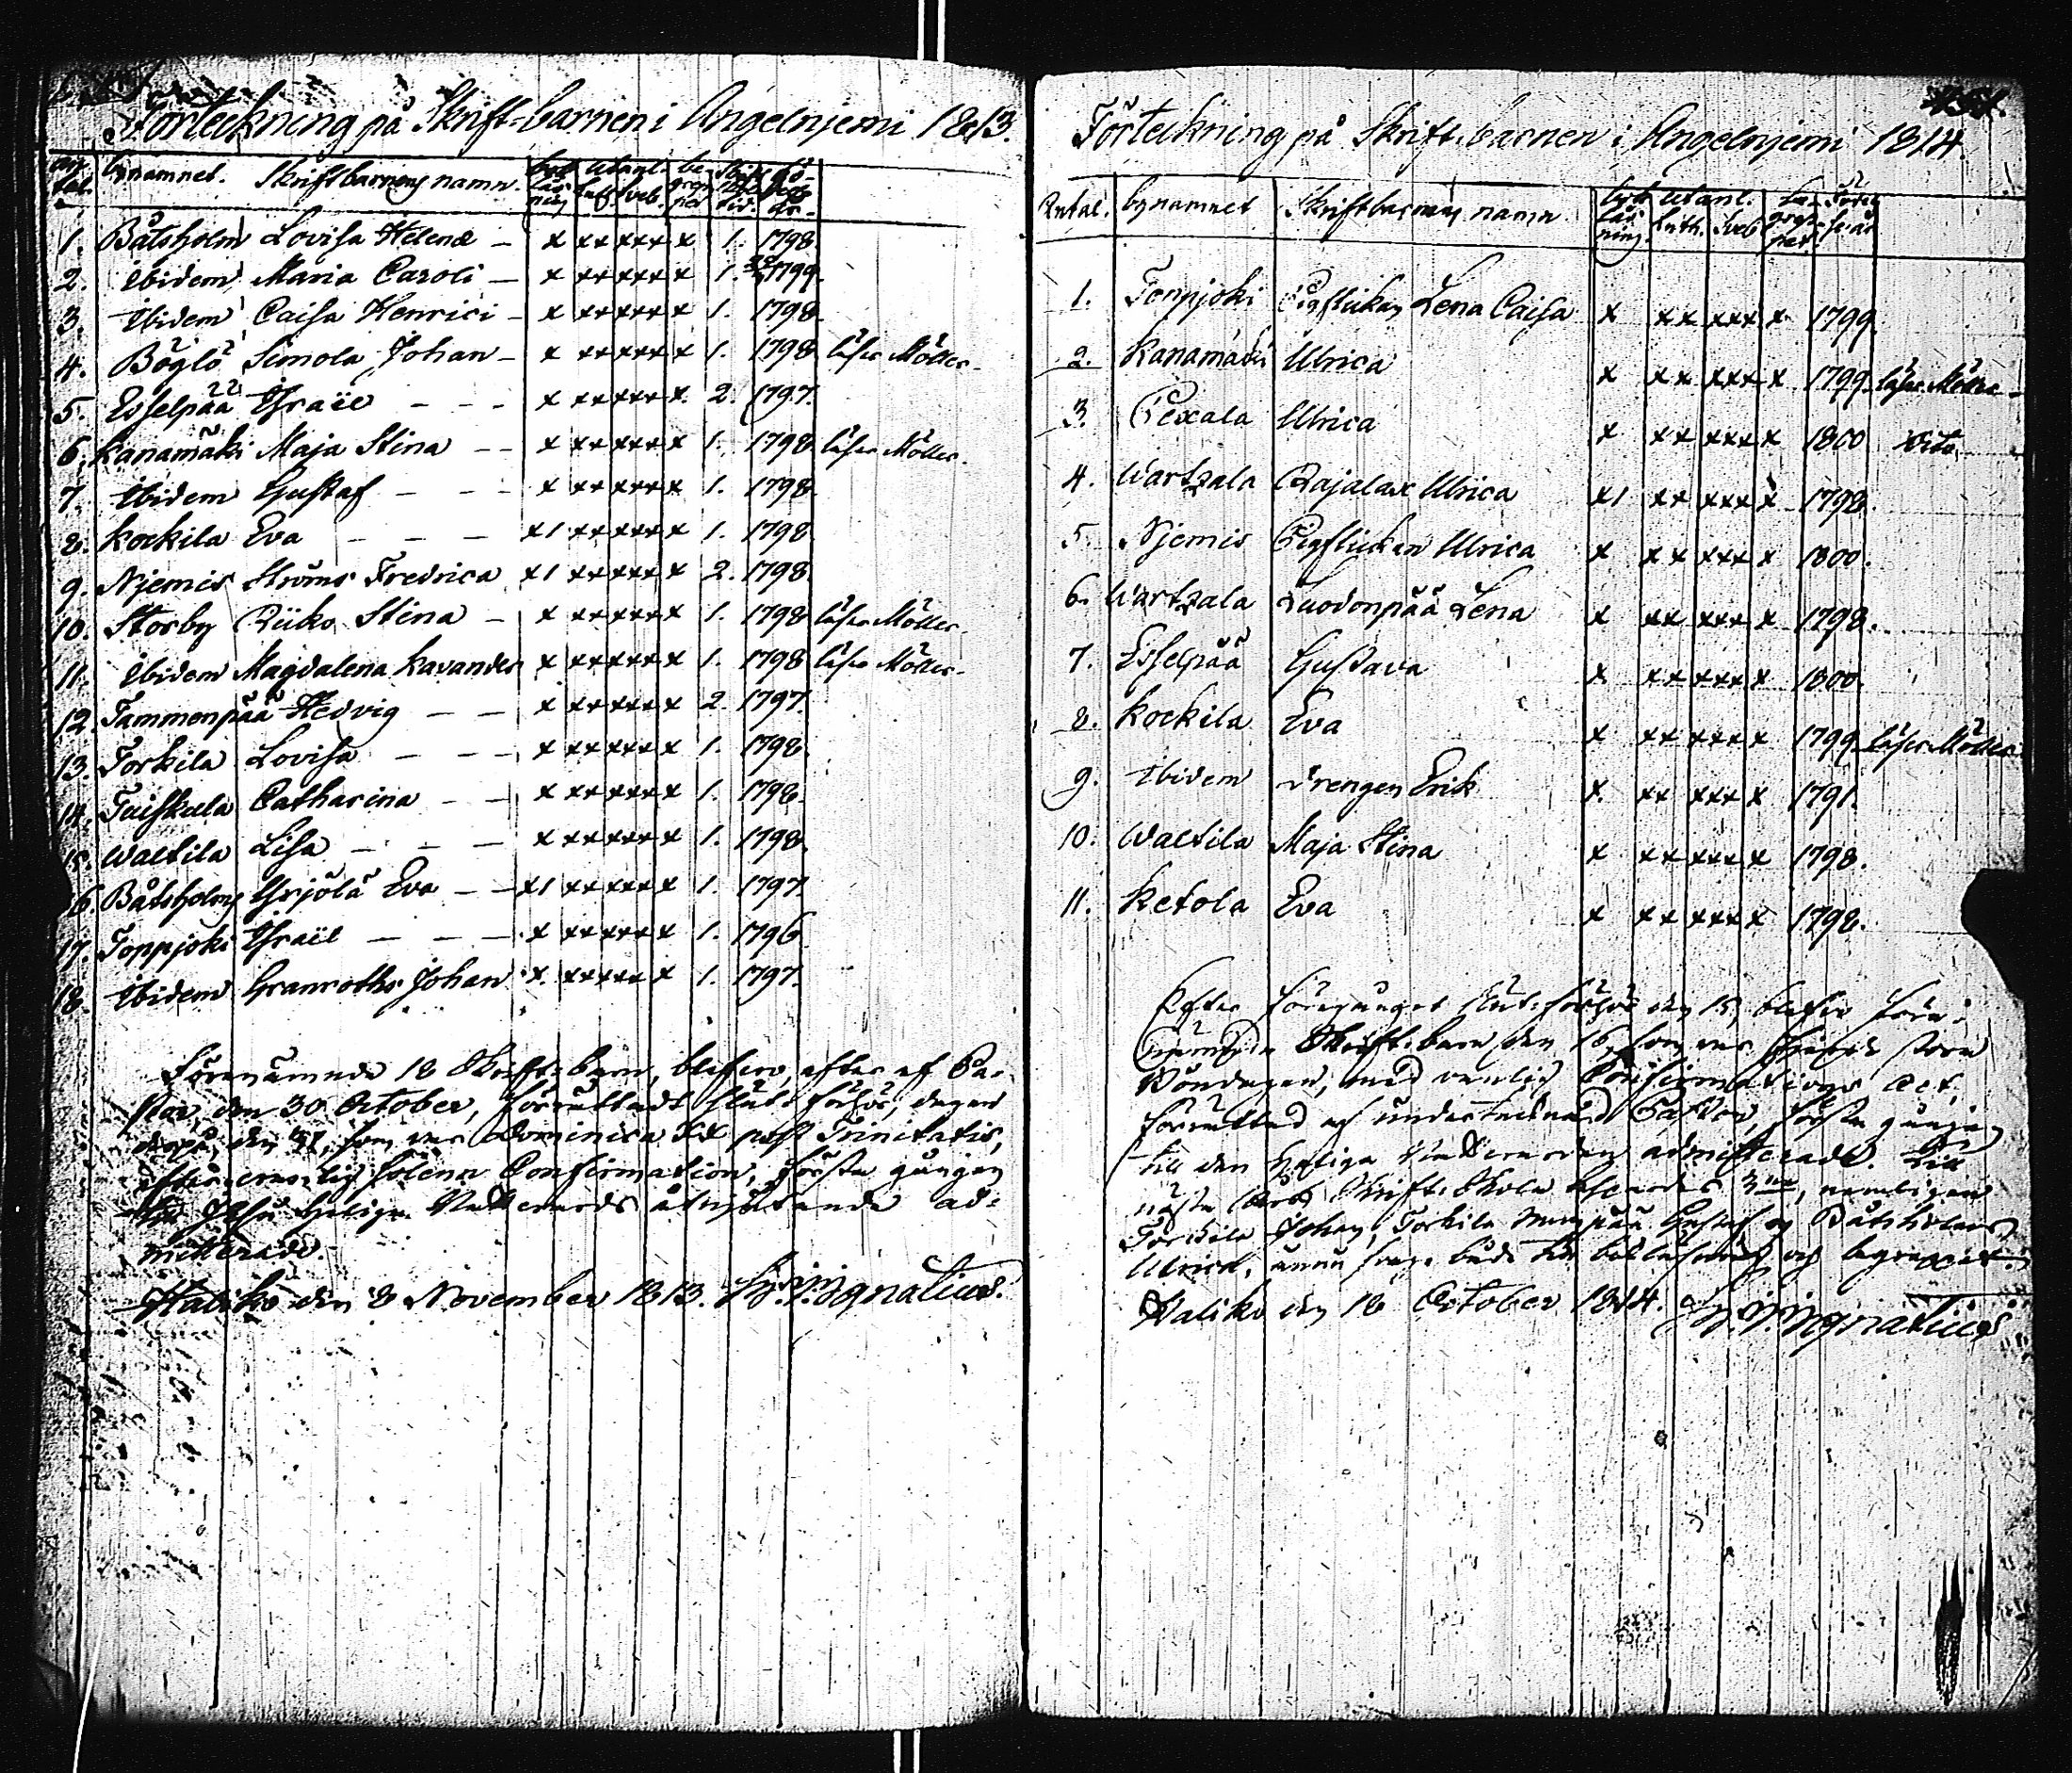 Förteckning på Skrift-barnen i Angelnjemi 1813.
an-tal. bynamnet. Skriftbarnens namn. bok läs-ning utanl. Luth. Sveb. be-grep-pet Skrift tid. fö-delse år.
1. Båtsholm Lovisa Helena – x xx xxx x 1. 1798.
2. ibidem Maria Caroli – x xx xxx x 1. 1799.
3. ibidem Caisa Henrici – x xx xxx x 1. 1798.
4. Böglö Simola Johan – x xx xxx x 1. 1798 läser Möller.
5. Esselpää Israël – – – x xx xxx x 2. 1797.
6. Kanamäki Maja Stina – – x xx xxx x 1. 1798 läser Möller.
7. ibidem Gustaf – – – x xx xxx x 1. 1798.
8. Kockila Eva – – – x1 xx xxx x 1. 1798
9. Njemis Ströms Fredrica x1 xx xxx x 2. 1798.
10. Storby Riiko Stina – x xx xxx x 1. 1798 läser Möller.
11. ibidem Magdalena Kavander x xx xxx x 1. 1798 läser Möller.
12. Tammenpää Hedvig – – x xx xxx x 2. 1797.
13. Torkila Lovisa – – – x xx xxx x 1. 1798.
14. Tuiskula Catharina – – x xx xxx x 1. 1798.
15. Waltila Lisa – – – x xx xxx x 1. 1798.
16. Båtsholm Yrjölä Eva – – x1 xx xxx x 1. 1797.
17. Toppjoki Israël – – – x xx xxx x 1. 1796
18. ibidem Granroths Johan x. xx xxx x 1. 1797.
Förenämnde 18 Skrift-barn, blefvo, efter af Pa-
stor, den 30 October, förrättadt slut-förhör, dagen
derpå, den 31, som var Dominica XX post Trinitatis,
efter vanlig solenn Confirmation, första gången
till Jesu Heliga Nattvards åtnjutande ad-
mitterade.
Haliko den 8 November 1813. Ignatius.
Förteckning på Skrift-barnen i Angelnjemi 1814.
Antal. bynamnet Skriftbarnens namn bok läs-ning utanl. Luth. Sveb. be-grep-pet Födel-se år
1. Toppjoki Pigflickan Lena Caisa x xx xxx x 1799.
2. Kanamäki Ulrica x xx xxx x 1799. läser Möller –
3. Pexala Ulrica x xx xxx x 1800 dito
4. Wartsala Rajalax Ulrica x1 xx xxx x 1798.
5. Njemis Pigflickan Ulrica x xx xxx x 1800.
6. Wartsala Luodonpää Lena x xx xxx x 1798.
7. Esselpää Gustava x xx xxx x 1800.
8. Kockila Eva x xx xxx x 1799 läser Möller
9. ibidem drengen Erik x. xx xxx x 1791.
10. Waltila Maja Stina x xx xxx x 1798.
11. Ketola Eva x xx xxx x 1798.
Efter föregånget slut-förhör den 15, blefvo före-
nämnde Skrift-barn den 16, som var stora
Böndagen, med vanlig Confirmations act,
förrättad af undertecknad Pastor, första gången
till den heliga Nattvarden admitterade. Till
nästa års Skrift-Skola 3ne, nemligen
Torkila Johan, Torkila Gustaf og Båtsholms
Ulrica, ännu både till bokläsning og begreppet.
Haliko den 18 October 1814. Ignatius